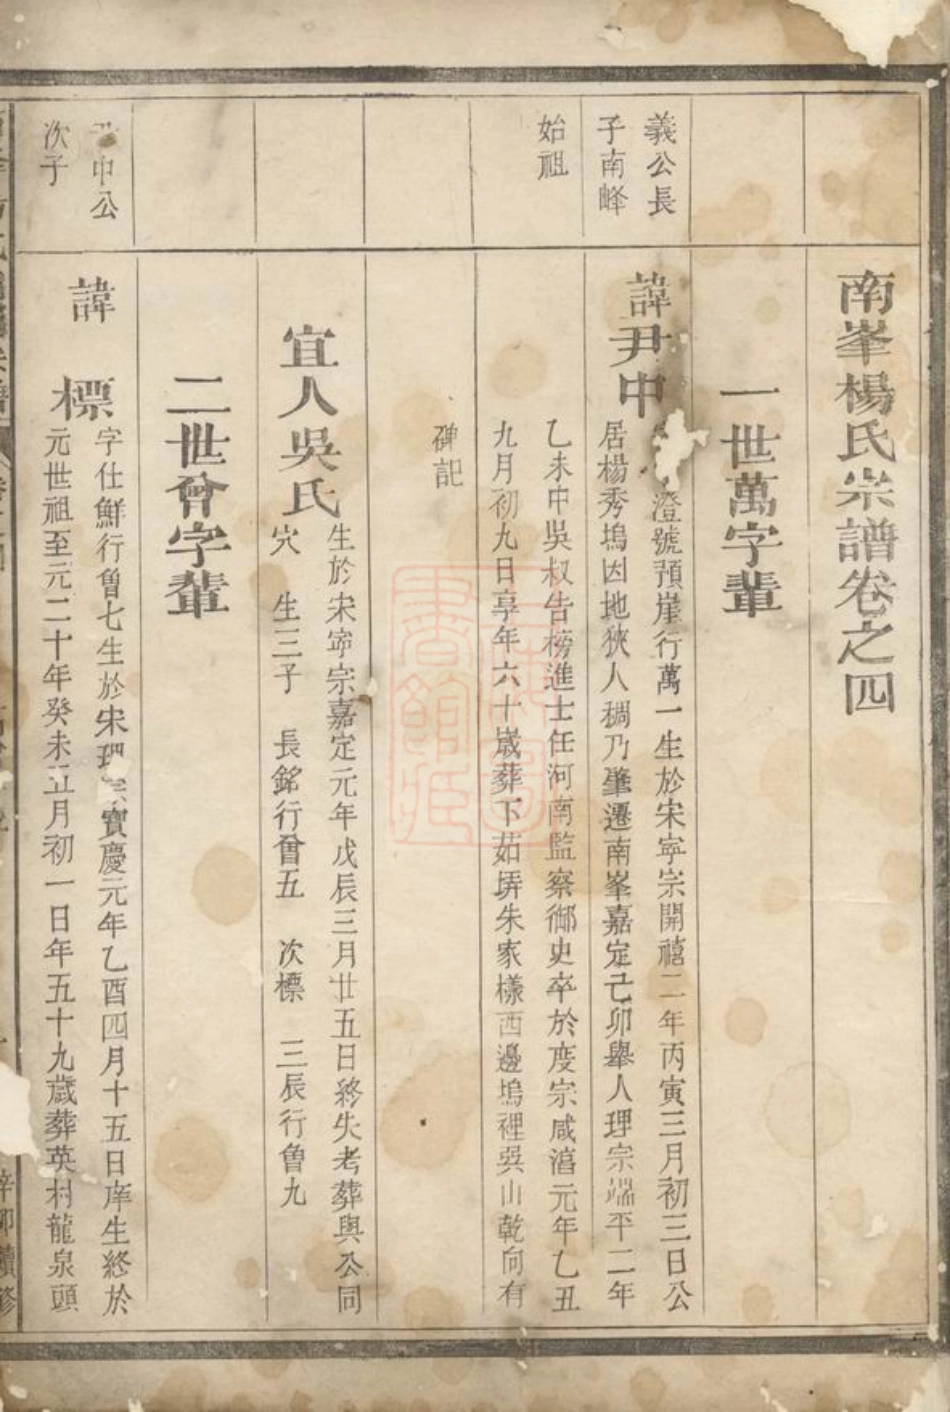 南峯楊氏宗譜卷之四
一世萬字輩
義公長
子南峰
始祖
諱尹中
澄號預崖行萬一生於宋寧宗開禧二年丙寅三月初三日公
居楊秀塢因地狹人稠乃肇遷南峯嘉定己卯舉人理宗端平二年
乙未中吳叔告榜進士任河南監察御史卒於度宗咸淳元年乙丑
九月初九日享年六十歲葬下茹塝朱家樣西邊塢裡吳山乾向有
碑記
宜人吳氏
生於宋寧宗嘉定元年戊辰三月廿五日終失考葬與公同
穴 生三子 長銘行曾五 次標 三辰行魯九
二世曾字輩
中公
次子
諱 標
字仕鮮行魯七生於宋理宗寶慶元年乙酉四月十五日庠生終於
元世祖至元二十年癸未五月初一日年五十九歲葬英村龍泉頭
辛卯續修